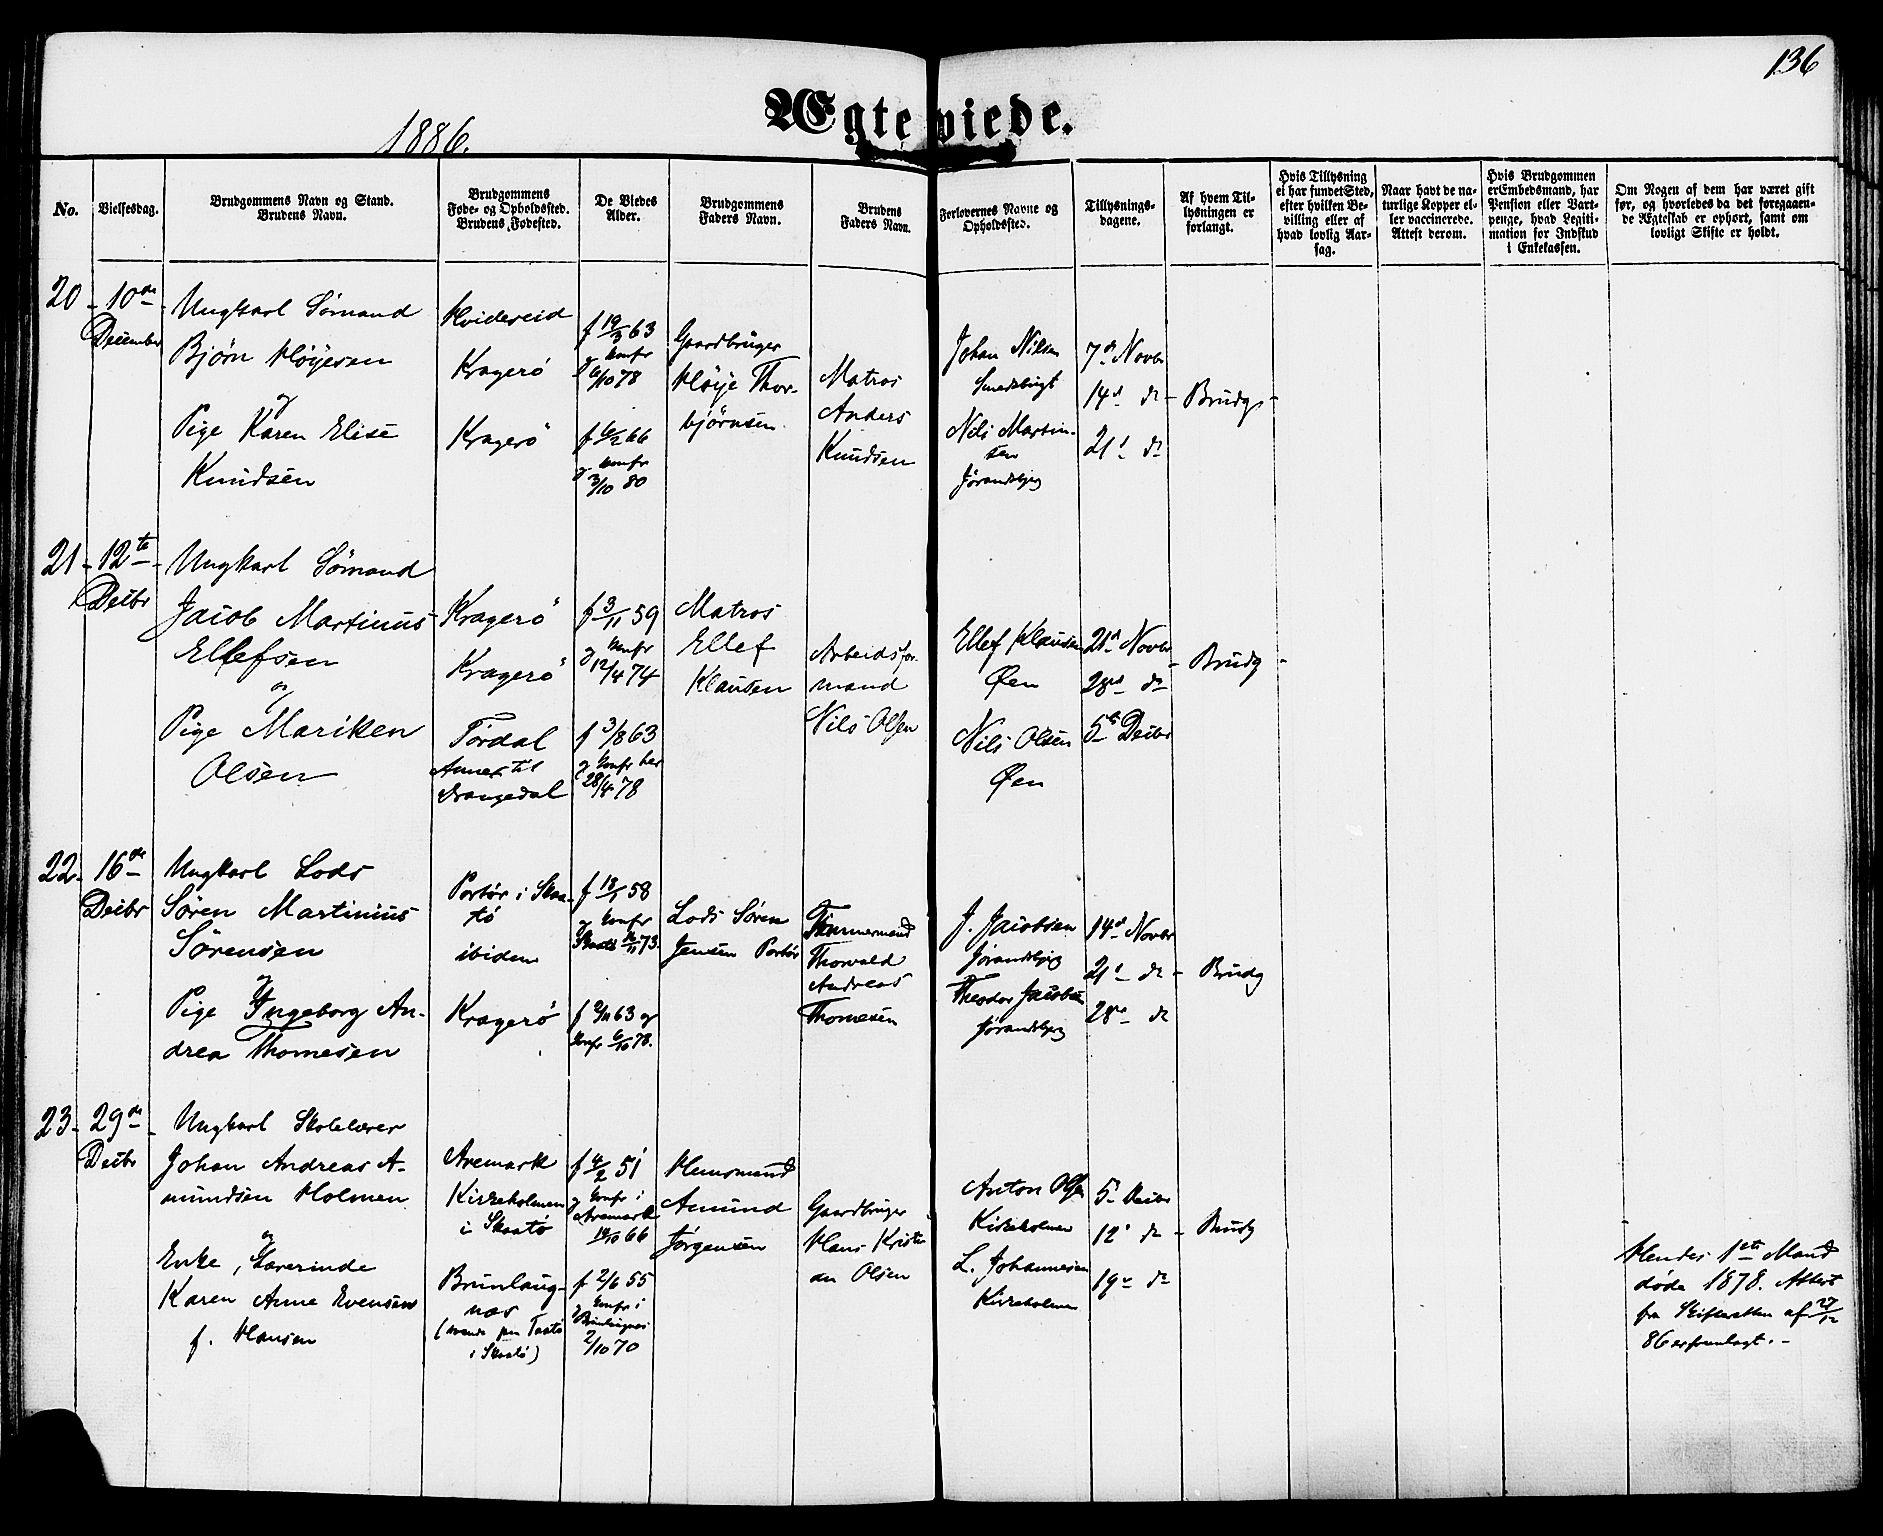 136
1886.
Ægteviede.
No.
Vielsesdag.
Brudgommens Navn og Stand.
Brudens Navn.
Brudgommens
Føde- og Opholdssted.
Brudens Fødested.
De Viedes
Alder.
Brudgommens
Faders Navn.
Brudens
Faders Navn.
Forlovernes Navne og
Opholdssted.
Tillysnings-
dagene.
Af hvem Til-
lysningen er
forlangt.
Hvis Tillysning
ei har fundet Sted,
efter hvilken Be-
villing eller af
hvad lovlig Aar-
sag.
Naar havt de na-
turlige Kopper el-
ler vaccinerede.
Attest derom.
Hvis Brudgommen
er Embedsmand, har
Pension eller Vart-
penge, hvad Legiti-
mation for Indskud
i Enkekassen.
Om Nogen af dem har været gift
før, og hvorledes da det foregaaen-
de Ægteskab er ophørt, samt om
lovligt Skifte er holdt.
20 - 10de
December
Ungkarl Sømand
Bjørn Høyesen
og
Pige Karen Elise
Knudsen
Hvidereid
Kragerö
Kragerö
f 19/3 63
og konfr
6/10 78
f 6/2 66
og konfr
3/10 80
Gaardbruger
Høije Thor-
bjørnsen.
Matros
Anders
Knudsen
Johan Nilsen
Smedsbugt
Nils Martin-
sen
Jørandsbjerg
7de Novbr
14d do -
21d do
Brudg -
21 - 12te
Decbr
Ungkarl Sömand
Jacob Martinius
Ellefsen
og
Pige Mariken
Olsen
Kragerö
Kragerö
Tördal
Annex til
Drangedal
f 3/11 59
og konfr
12/4 74
f 3/8 63
og konfr her
28/4 78
Matros
Ellef
Klausen
Arbeidsfor-
mand
Nils Olsen
Ellef Klausen
Øen
Nils Olsen
Øen
21d Novbr
28d do
5te Decbr
- Brudg -
22 - 16de
Decbr
Ungkarl Lods
Søren Martinius
Sørensen
og
Pige Ingeborg An-
drea Thomesen
Portør i Skaa-
tö
ibidem
Kragerö
f 18/1 58
og konfr
Skaatö 16/11 73.
63 og
konfr 6/10 78.
Lods Søren
Jensen Portør
Timmermand
Thorvald
Andreas
Thomesen
J. Jacobsen
Jørandsbjerg
Theodor Jacobsen
Jørandsbjerg
14d Novbr
21d do -
28de do
Brudg
23 - 29de
Decbr
Ungkarl Skolelærer
Johan Andreas A-
mundsen Holmen
og
Enke, Lærerinde
Karen Anne Evensen
f. Hansen
Aremark
Kirkeholmen
i Skaatö
Brunlaug-
næs
i Skaatö)
f 4/2 51
og konfr i
Aremark
14/10 66
f 2/6 55
og konfr i
Brunlaugnæs
2/10 70
Huusmand
Amund
Jørgensen
Gaardbruger
Hans Kristi-
an Olsen
Anton Olsen
Kirkeholmen
L. Johannesen
Kirkeholmen
5te Decbr
12te do -
19de do
Brudg
Hendes 1ste Mand
døde 1878. Attest
fra Skifteretten af 27/12
86 er fremlagt. -